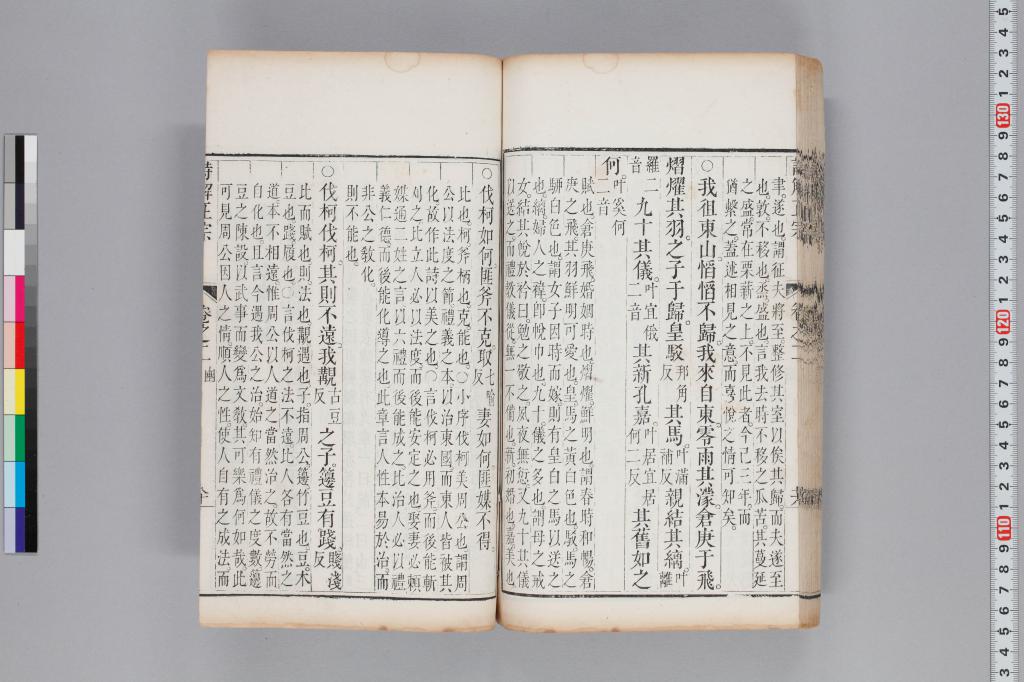 聿。遂也。謂征夫將至。整修其室以俟其歸。而夫遂至
也。敦。不移也。烝。盛也。言我去時不移之瓜苦。其蔓延
之盛。常在栗薪之上。不見此者。今已三年。而
猶繫之。蓋述相見之意。而喜悅之情可知矣。
○我徂東山。慆慆不歸。我來自東。零雨其濛。倉庚于飛。
熠燿其羽。之子于歸。皇駁邦角反其馬。叶滿補反親結其縭。叶離
羅二音九十其儀。叶宜俄二音其新孔嘉。叶居宜居何二反其舊如之
何。叶奚何二音
賦也。倉庚飛。婚姻時也。熠燿。鮮明也。謂春時和暢。倉
庚之飛。其羽鮮明可愛也。皇。馬之黃白色也。駁。馬之
騂白色也。謂女子因時而嫁。則有皇白之馬以送之
也。縭。婦人之褘。即帨巾也。九十。儀之多也。謂母之戒
女。結其帨於衿曰。勉之敬之。夙夜無愆。又九十其儀
以送之。而禮數儀從。無一不備也。新。初婚也。嘉。美也
○伐柯如何。匪斧不克。取七喻反妻如何。匪媒不得。
比也。柯。斧柄也。克。能也。○小序伐柯美周公也。謂周
公以法度之節。禮義之本。以治東國。而東人皆被其
化。故作此詩以美之也。○言伐柯必用斧而後能斬
之。比立人必以法度而後能安定之也。娶妻必賴
媒通二姓之言。以六禮而後能成之。比治人必以禮
義仁德而後能化導之也。此章言人性本易於治。而
非公之教化。
則不能也。
○伐柯伐柯。其則不遠。我覯古豆反之子。籩豆有踐。賤淺反
比而賦也。則。法也。覯。遇也。子。指周公。籩。竹豆也。豆。木
豆也。踐。履也。○言伐柯之法不遠。比人各有當然之
道。本不相遠。惟周公以人道之當然治之。故不勞而
自化也。且言今遇我公之治。始知有禮儀之度數。籩
豆之陳設。以武事而變為文教。其可樂為何如哉。此
可見周公因人之情。順人之性。使人自有之成法。而
詩解正宗
卷之二